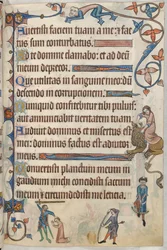 Auertisti faciem tuam a me: et fac
tus sum conturbatus.
Ad te domine clamabo: et ad deū
meum deprecabor.
Que utilitas in sanguine meo: dū
descendo in corrupcionem.
Numquid confitebitur tibi puluis:
aut annunciabit ueritatem tuam.
Audiuit dominus et misertus est
mei: dominus factus est adiutor
meus.
Conuertisti planctum meum in
gaudium michi: concidisti saccum
meum et circumdedisti me leticia.